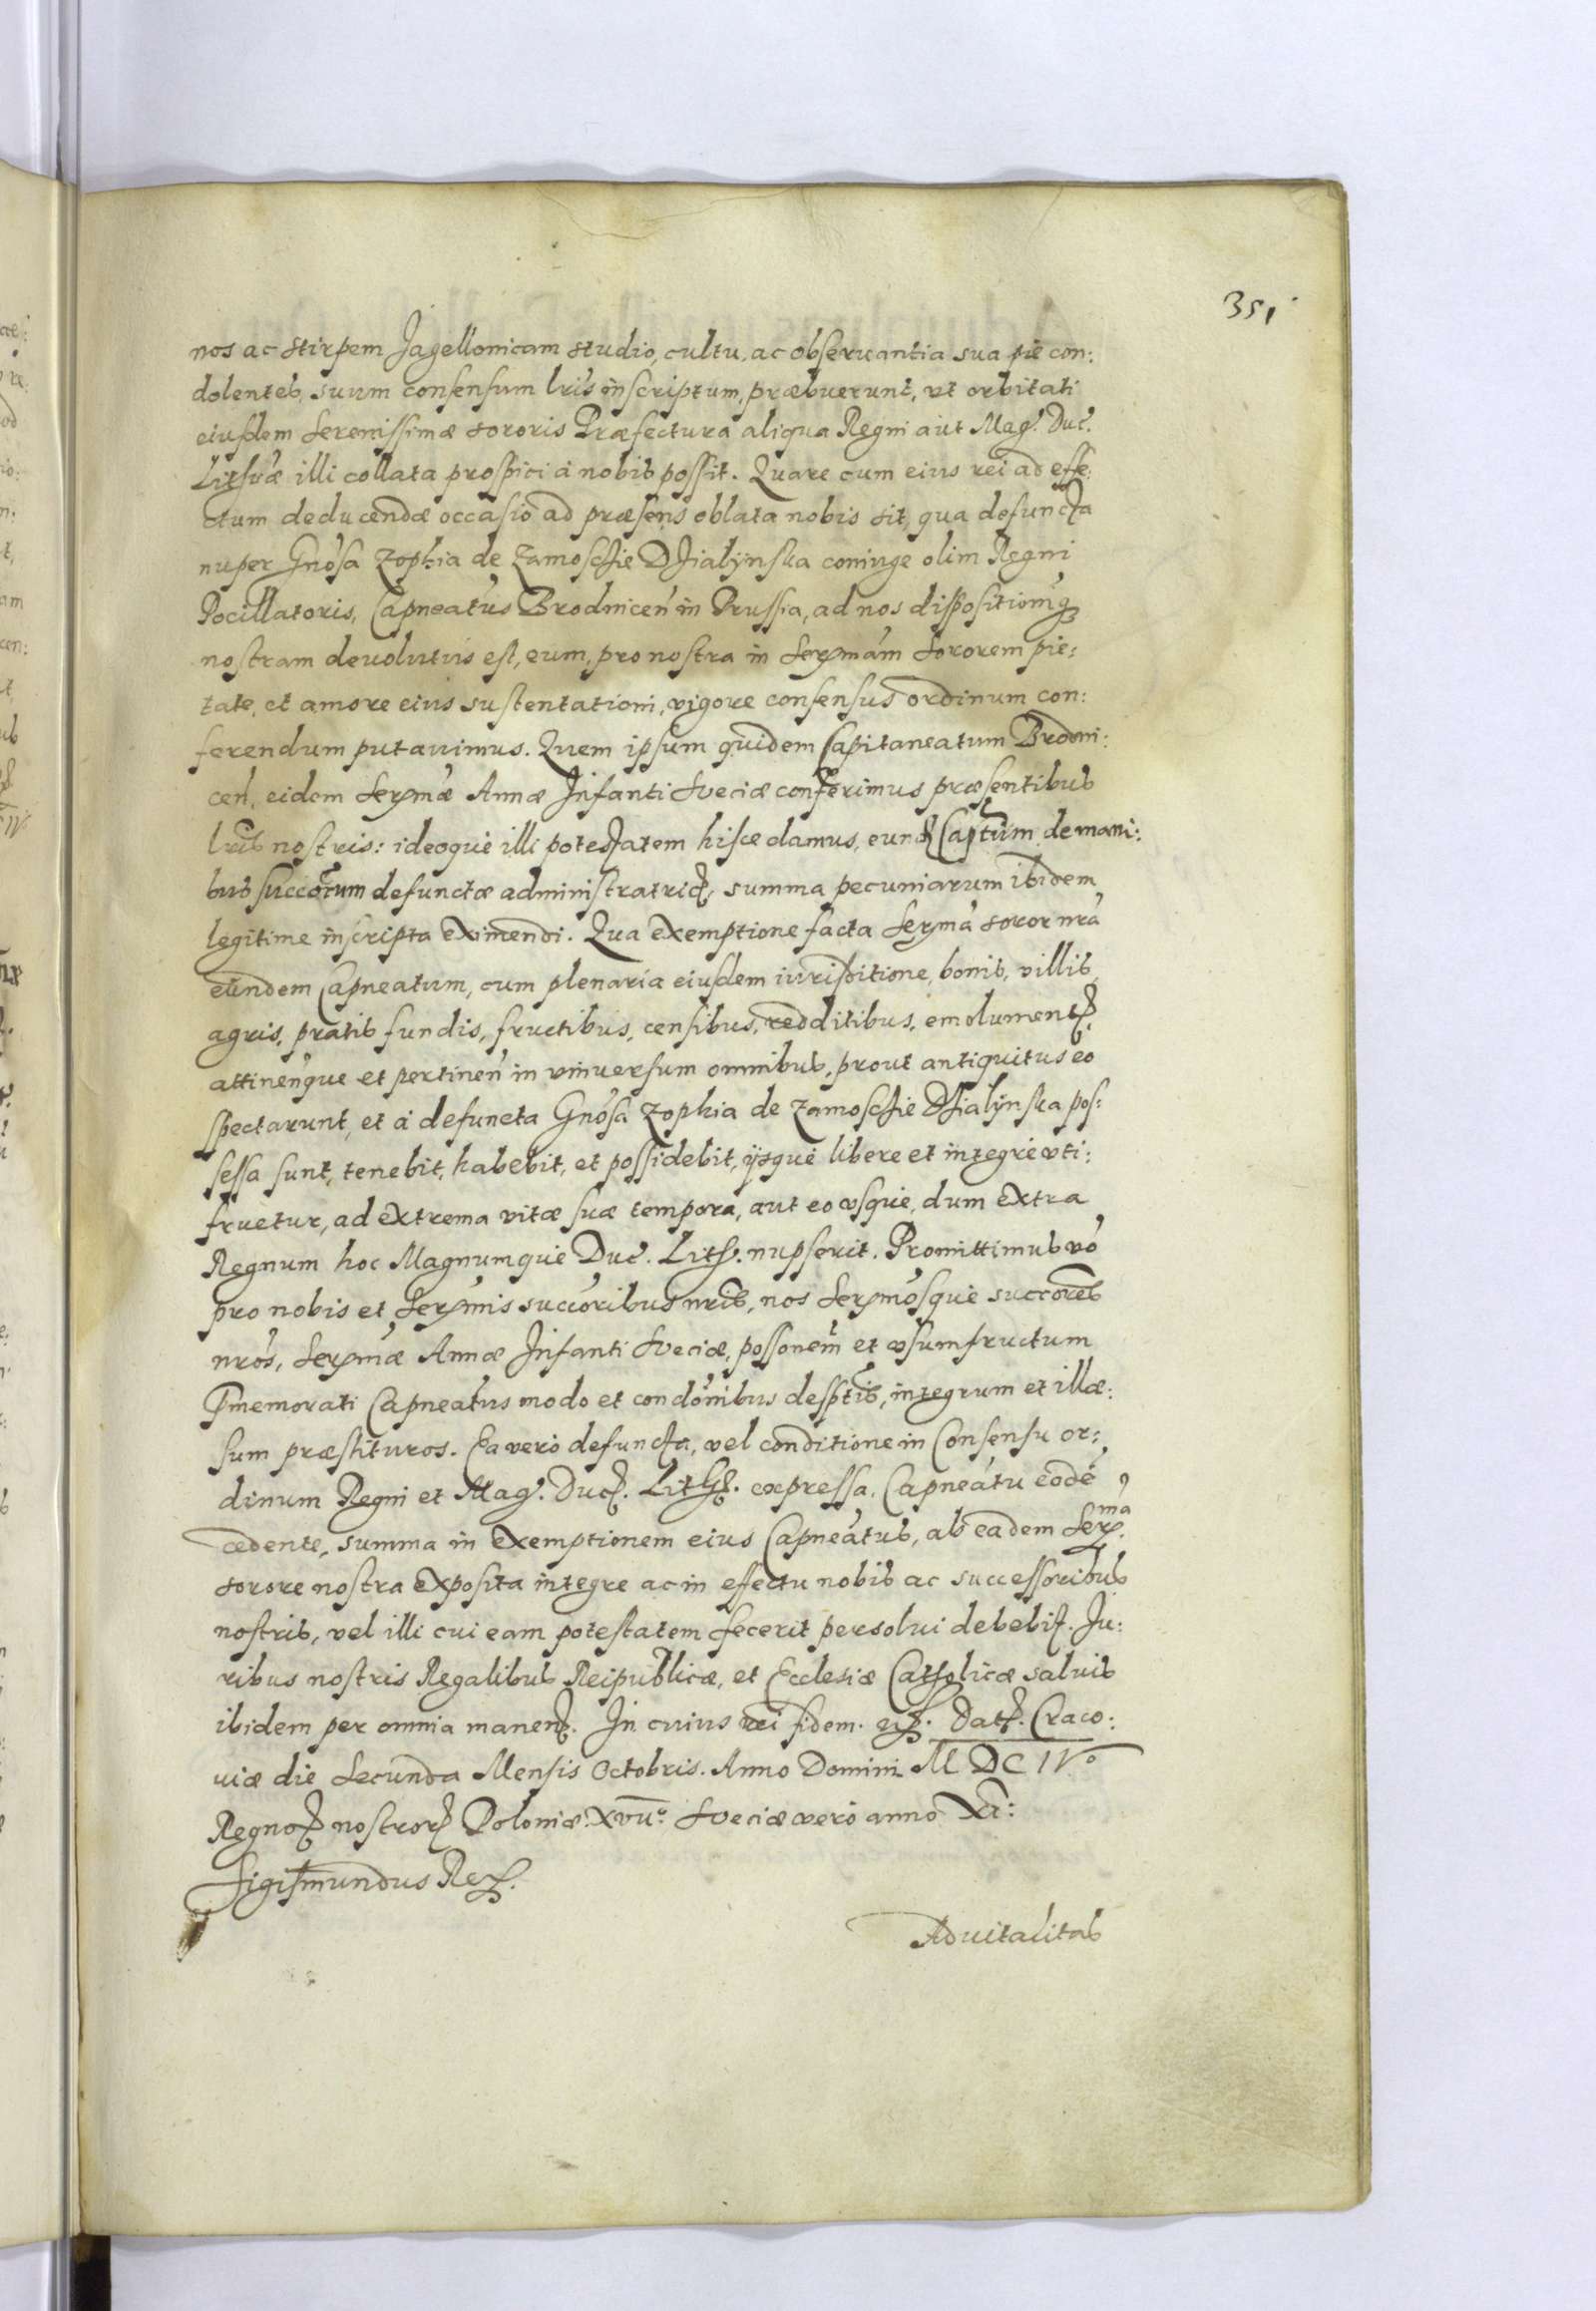 351
nos ac stirpem Jagellonicam studio, cultu, ac obseruantia sua pie con:
dolentes, suum consensum lris inscriptum, præbuerunt, vt orbitati
eiusdem Serenissimæ sororis Præfectura aliqua Regni aut Mag. Duc.
Lithuæ illi collata prospici à nobis possit. Quare cum eius rei ad effe:
ctum deducendæ occasio ad præsens oblata nobis sit, qua defuncta
nuper Gnosa Zophia de Zamoscie Dzialÿnska coniuge olim Regni
Pocillatoris, Capneatus Brodnicen in Prussia, ad nos dispositionemq
nostram deuolutus est, eum, pro nostra in Serxmam Sororem pie:
tate, et amore eius sustentationi, vigore consensus ordinum con:
ferendum putauimus. Quem ipsum quidem Capitaneatum Brodni:
cen, eidem Serxmæ Annæ Infanti Sveciæ conferimus præsentibus
lris nostris: ideoque illi potestatem hisce damus, eund Captum de mani:
bus succorum defunctæ administratric, summa pecuniarum ibidem
legitime inscripta eximendi. Qua exemptione facta Serxma soror nra
eundem Capneatum, cum plenaria eiusdem iurisditione, bonis, villis,
agris, pratis fundis, fructibus, censibus, redditibus, emolument
attinenque et pertinen in vniuersum omnibus, prout antiquitus eo
spectarunt, et à defuncta Gnosa Zophia de Zamoscie Dzialÿnska pos:
sessa sunt, tenebit, habebit, et possidebit, ÿsque libere et integre vti:
fruetur, ad extrema vitæ suæ tempora, aut eo vsque, dum extra
Regnum hoc Magnumque Duc. Lith. nupserit. Promittimus vo
pro nobis et Serxmis succoribus nris, nos Serxmosque succores
nros, Serxmæ Annæ Infanti Sveciæ, possonem et vsumfructum
Pmemorati Capneatus modo et condonibus desptis, integrum et illæ:
sum præstituros. Ea vero defuncta, vel conditione in Consensu or:
dinum Regni et Mag. Duc. Lith. expressa, Capneatu eode
cedente, summa in exemptionem eius Capneatus, ab eadem Serx.ma
sorore nostra exposita integre ac in effectu nobis ac successoribus
nostris, vel illi cui eam potestatem fecerit persolui debebit. Ju:
ribus nostris Regalibus Reipublicæ, et Ecclesiæ Catholicæ saluis
ibidem per omnia manen. In cuius rei fidem. Dat. Craco:
uiæ die Secunda Mensis Octobris. Anno Domini MDCIVo
Regnor nostror Poloniæ. XVIIo. Sveciæ vero anno XI:
Sigismundus Rex.
Aduitalitas